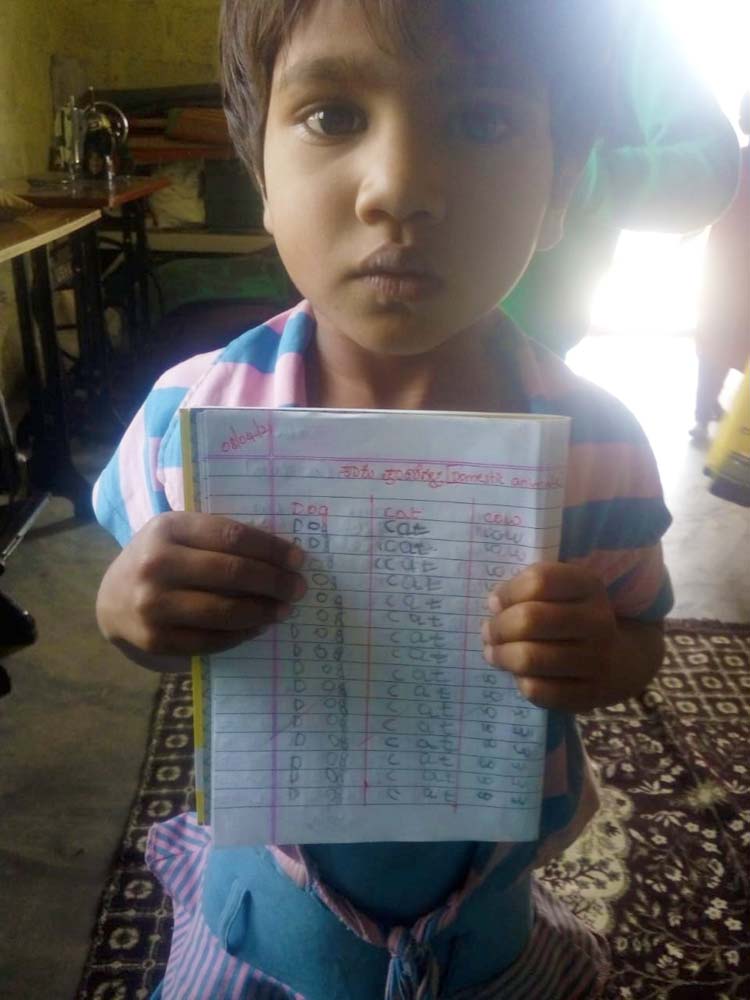 08/04/21
ಸಾಕು ಪ್ರಾಣಿಗಳು / Domestic animals
Dog cat cow
Dog cat cow
Dog cat cow
cat cow
cat
Dog cat
Dog cat
Dog cat
Dog cat
Dog cat
Dog cat cow
Dog cat cow
Dog cat cow
Dog cat cow
Dog cat cow
Dog cat cow
Dog cat cow